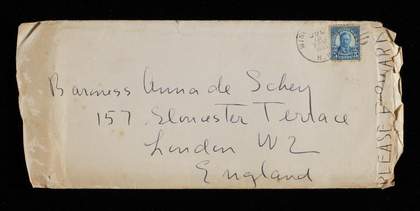 Baroness Anna de Schey
157. Gloucester Terrace
London W2
England
PLEASE FORWARD